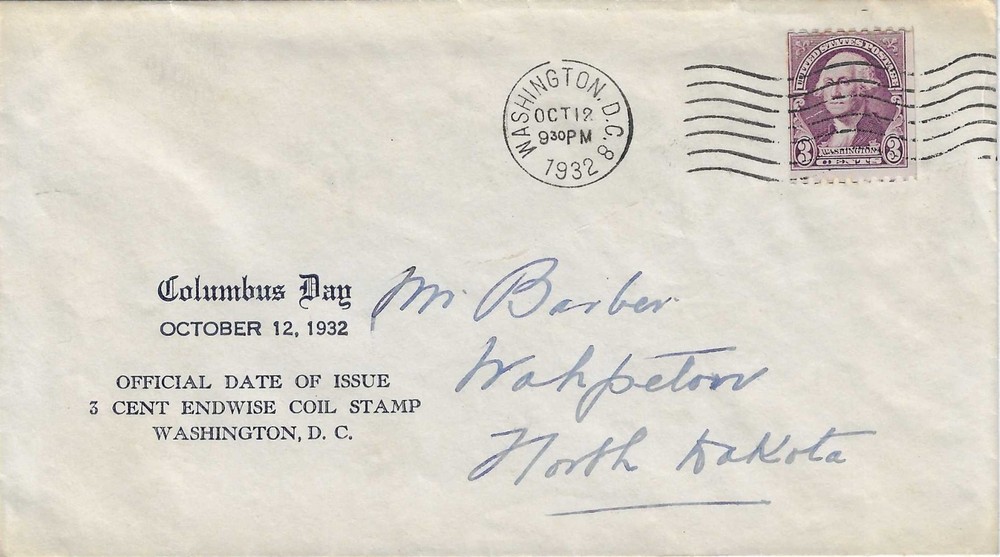 WASHINGTON, D.C. 8
OCT 12
9 30 PM
1932
UNITED STATES POSTAGE
3 WASHINGTON 3
CENTS
Columbus Day
OCTOBER 12, 1932
OFFICIAL DATE OF ISSUE
3 CENT ENDWISE COIL STAMP
WASHINGTON, D. C.
Mr. Barber
Wahpeton
North Dakota